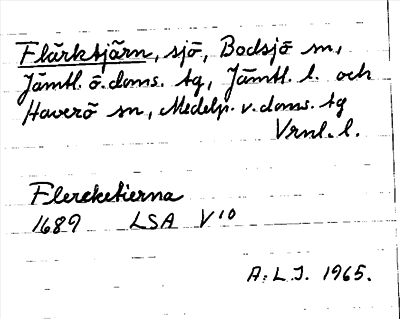 Flärktjärn, sjö, Bodsjö sn,
Jämtl. ö. doms. tg, Jämtl. l. och
Haverö sn, Medelp. v. doms. tg
Vrnl. l.
Flercketierna
1689 LSA V¹⁰
A. L. J. 1965.